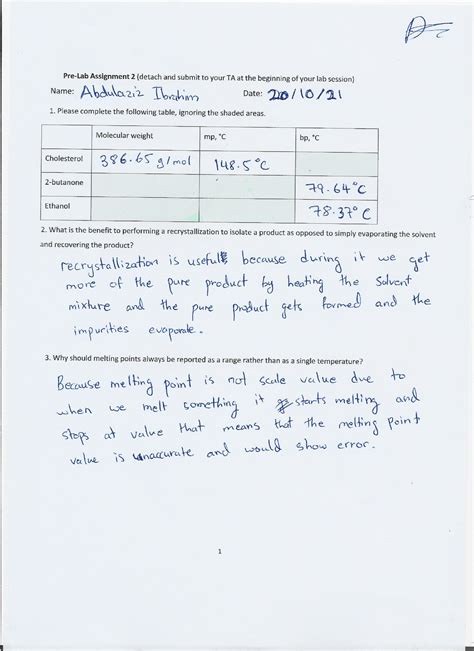 Pre-Lab Assignment 2 (detach and submit to your TA at the beginning of your lab session)
Name: Abdulaziz Ibrahim Date: 20/10/21
1. Please complete the following table, ignoring the shaded areas.
Molecular weight mp, °C bp, °C
Cholesterol 386.65 g/mol 148.5°C
2-butanone 79.64°C
Ethanol 78.37°C
2. What is the benefit to performing a recrystallization to isolate a product as opposed to simply evaporating the solvent
and recovering the product?
recrystallization is useful because during it we get
more of the pure product by heating the Solvent
mixture and the pure product gets formed and the
impurities evaporate.
3. Why should melting points always be reported as a range rather than as a single temperature?
Because melting point is not scale value due to
when we melt something it starts melting and
stops at value that means that the melting point
value is unaccurate and would show error.
1